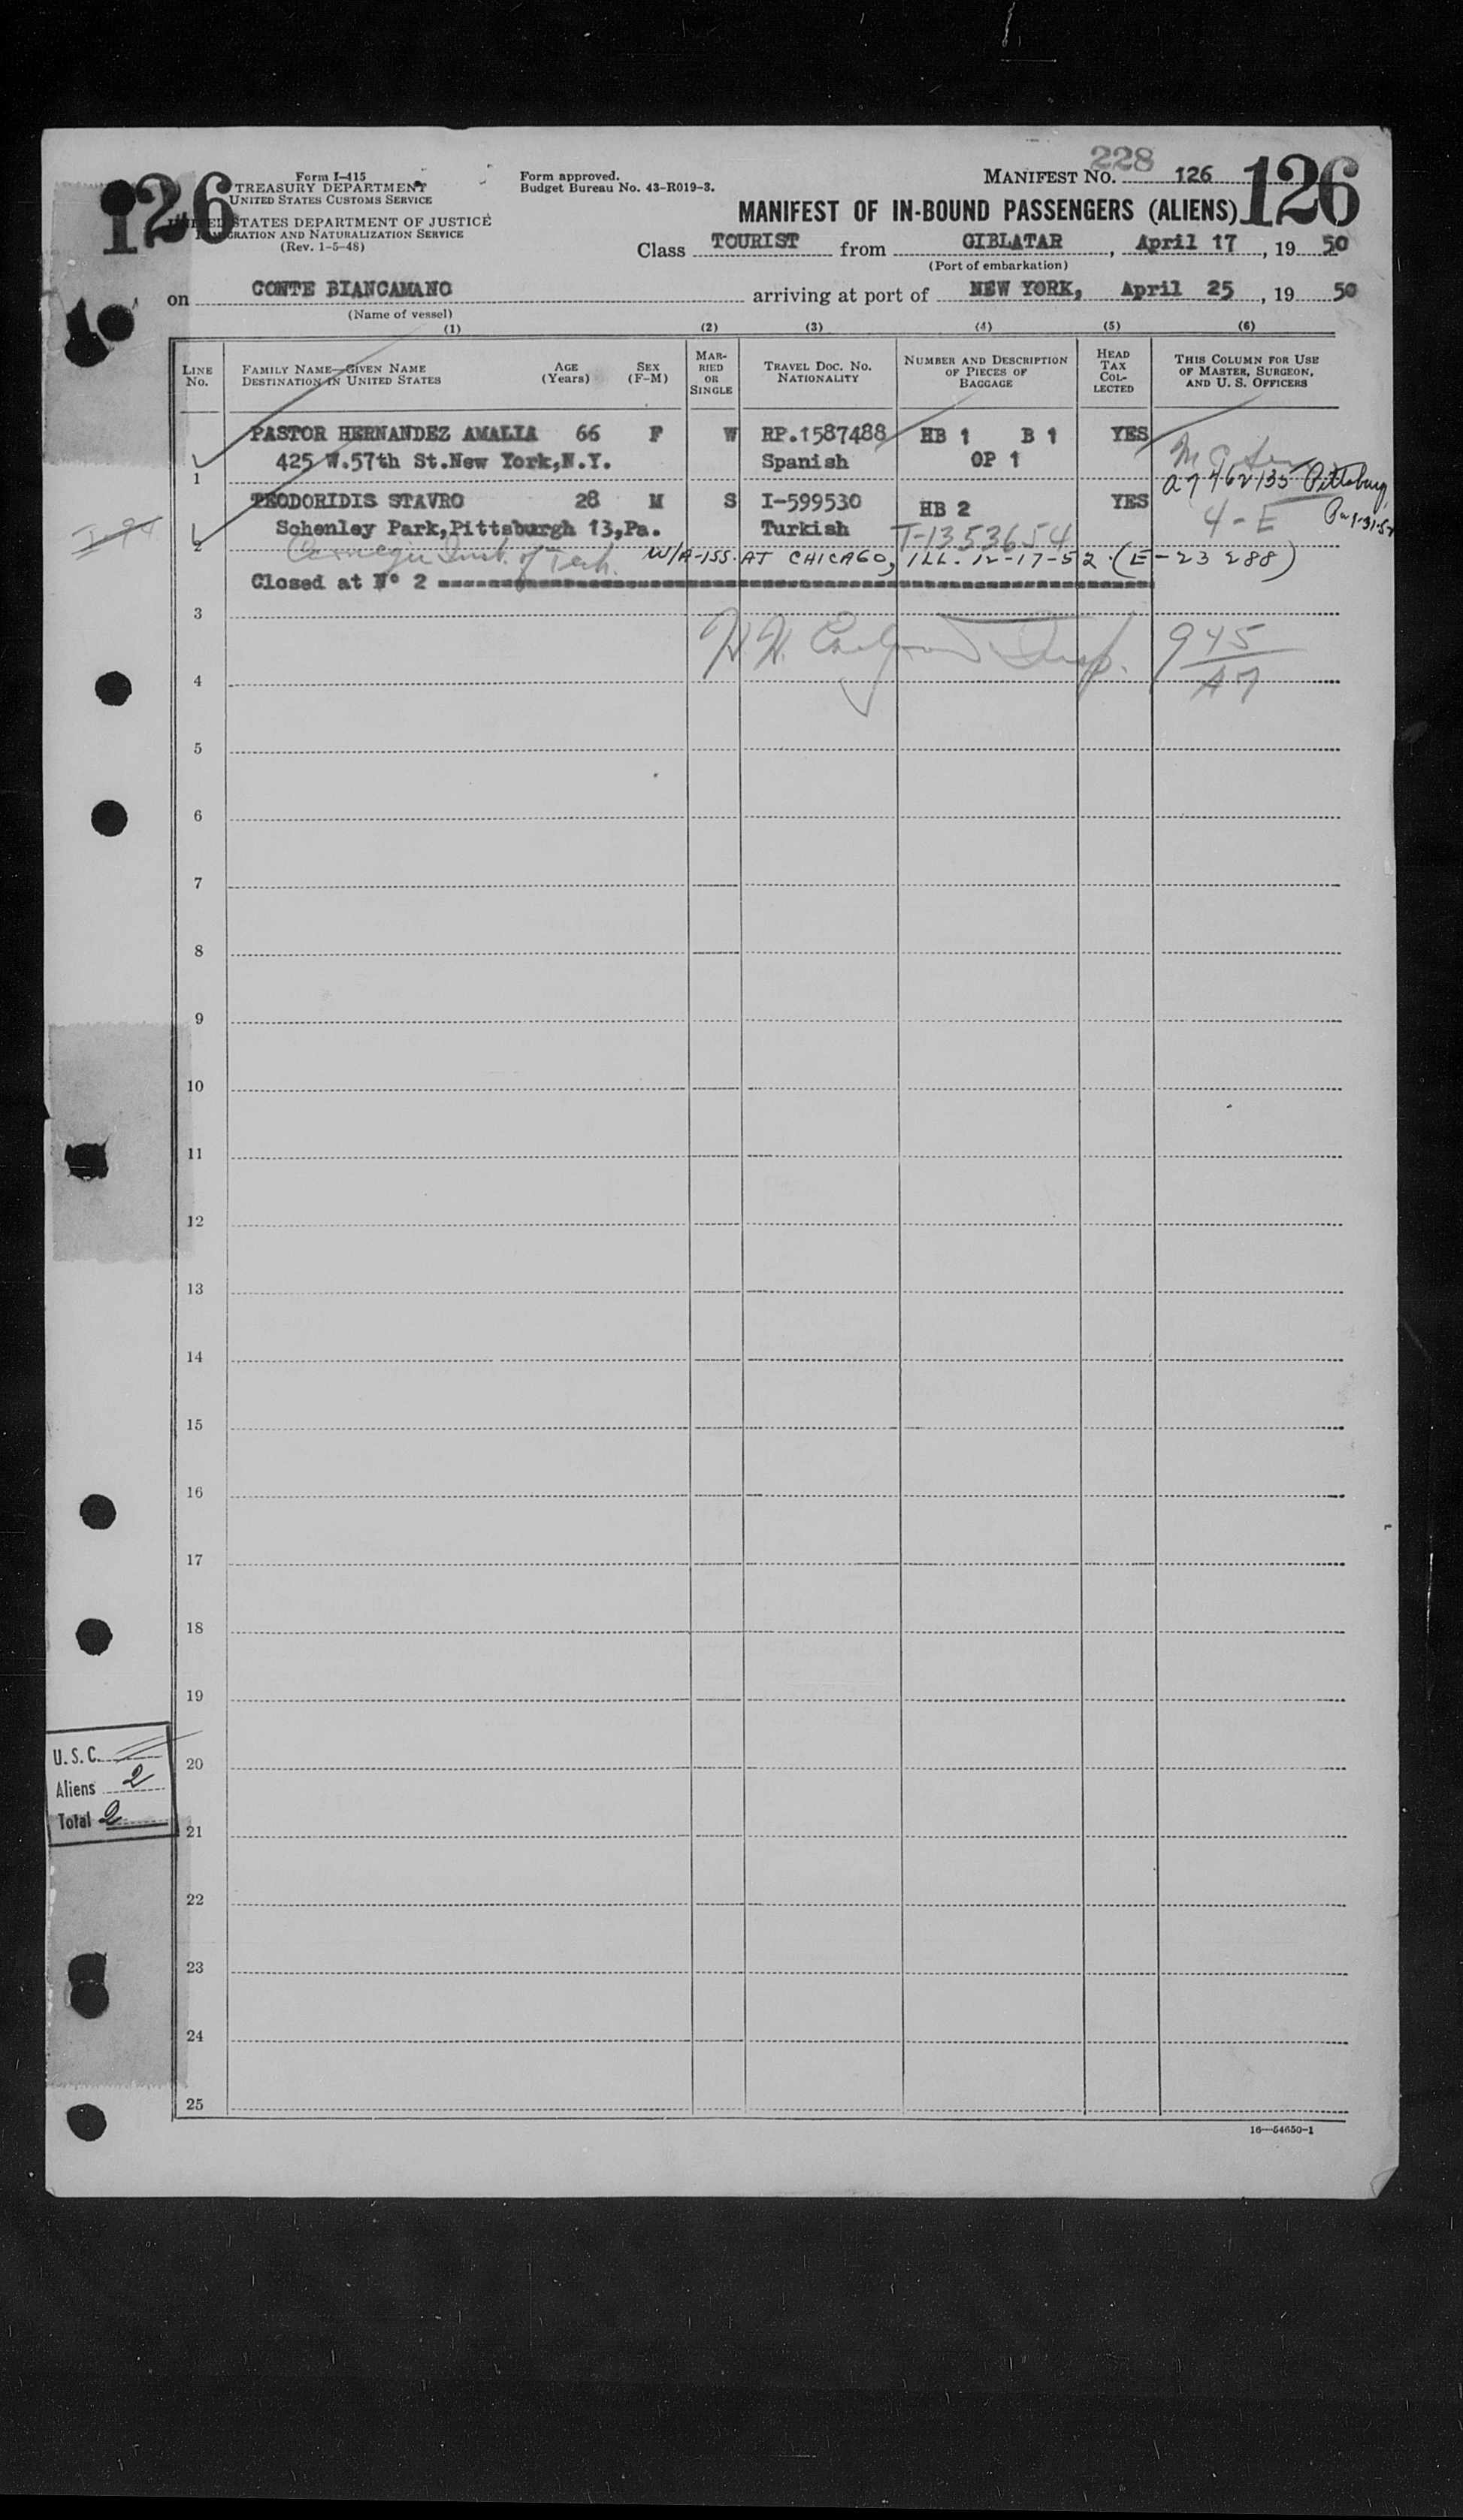 228
126
Form I-415
TREASURY DEPARTMENT
UNITED STATES CUSTOMS SERVICE
UNITED STATES DEPARTMENT OF JUSTICE
IMMIGRATION AND NATURALIZATION SERVICE
(Rev. 1-5-48)
Form approved.
Budget Bureau No. 43-R019-3.
MANIFEST NO. 126
126
MANIFEST OF IN-BOUND PASSENGERS (ALIENS)
Class TOURIST from GIBLATAR, April 17, 19 50
(Port of embarkation)
on CONTE BIANCAMANO arriving at port of NEW YORK, April 25, 19 50
(Name of vessel)
(1) (2) (3) (4) (5) (6)
LINE No.
FAMILY NAME—GIVEN NAME
DESTINATION IN UNITED STATES
AGE (Years)
SEX (F-M)
MAR-RIED OR SINGLE
TRAVEL DOC. NO. NATIONALITY
NUMBER AND DESCRIPTION OF PIECES OF BAGGAGE
HEAD TAX COL-LECTED
THIS COLUMN FOR USE OF MASTER, SURGEON, AND U. S. OFFICERS
PASTOR HERNANDEZ AMALIA 66 F W RP.1587488 HB 1 B 1 YES
425 W.57th St.New York,N.Y. Spanish OP 1
1
A7 462135 Pittsburg, Pa 1-31-52
TEODORIDIS STAVRO 28 M S I-599530 HB 2 YES 4-E
Schenley Park,Pittsburgh 13,Pa. Turkish T-1353654
2
Carnegie Inst. of Tech. W/A-ISS. AT CHICAGO, ILL. 12-17-52. (E-23288)
Closed at N° 2
3
945
A7
4
5
6
7
8
9
10
11
12
13
14
15
16
17
18
19
20
21
22
23
24
25
U.S.C.
Aliens 2
Total 2
16—54650-1